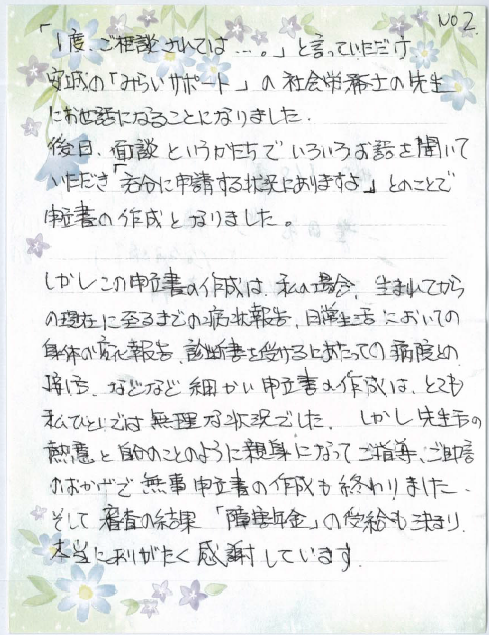 No 2.
「1度、ご相談されては…。」と言っていただけ
安城の「みらいサポート」の社会労務士の先生
にお世話になることになりました.
後日、面談というかたちでいろいろお話を聞いて
いただき「充分に申請する状況にありますよ」とのことで
申立書の作成となりました。
しかしこの申立書の作成は、私の場合、生まれてから
の現在に至るまでの病状報告、日常生活においての
身体の変化報告、診断書を受けるにあたっての病院との
などなど細かい申立書の作成は、とても
私ひとりでは無理な状況でした. しかし先生方の
熱意と自分のことのように親身になってご指導、ご助言
のおかげで無事申立書の作成も終わりました.
そして審査の結果「障害年金」の受給も決まり.
本当にありがたく感謝しています.